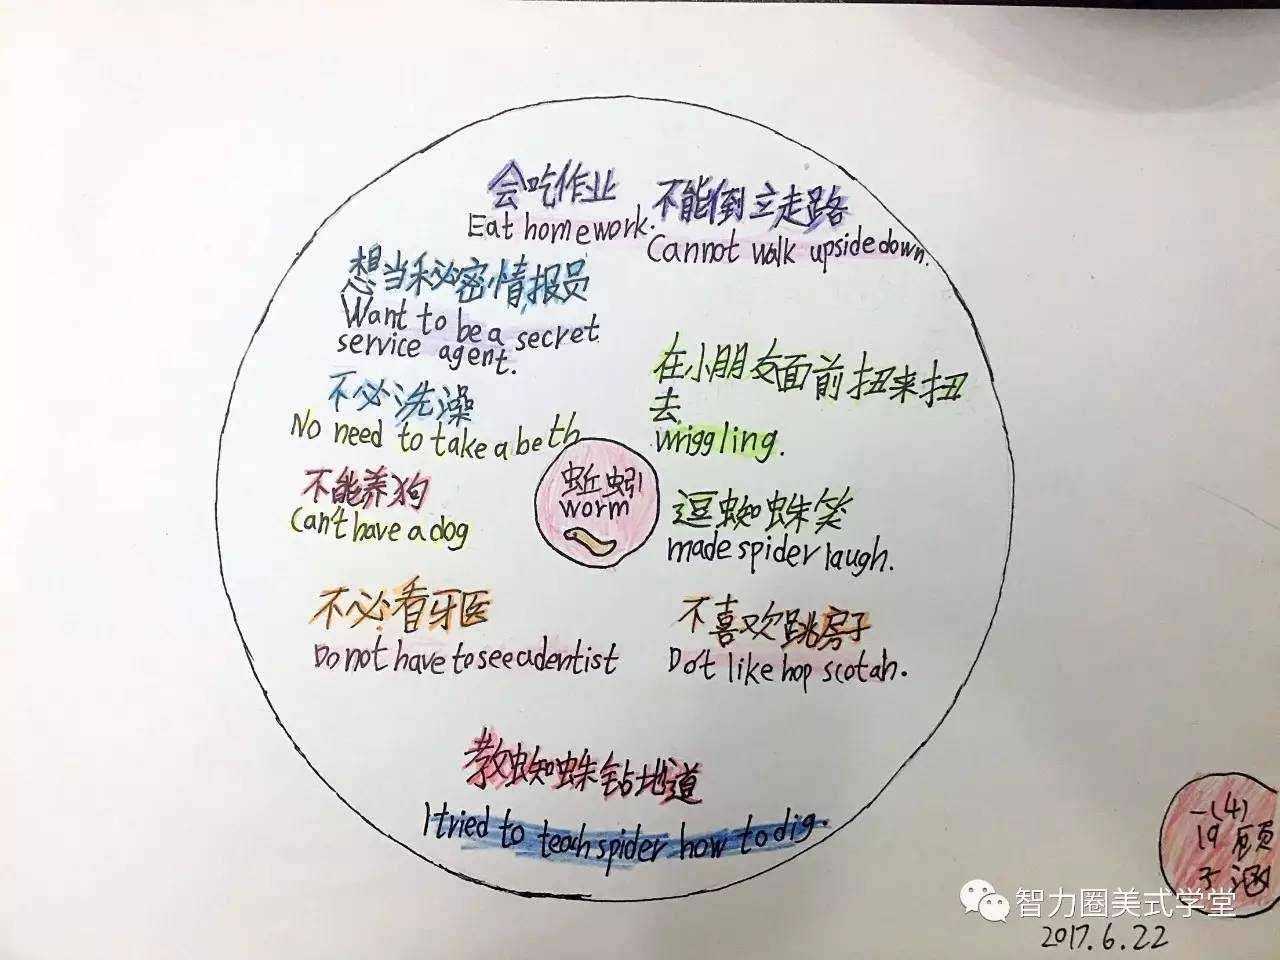 会吃作业
Eat homework.
不能倒立走路
Cannot walk upside down.
想当秘密情报员
Want to be a secret
service agent.
在小朋友面前扭来扭
去
wriggling.
不必洗澡
No need to take a beth
蚯蚓
worm
不能养狗
Can't have a dog
逗蜘蛛笑
made spider laugh.
不必看牙医
Do not have to see a dentist
不喜欢跳房子
Do't like hop scotah.
教蜘蛛钻地道
I tried to teach spider how to dig.
一(4)
19 顾
子涵
智力圈美式学堂
2017.6.22